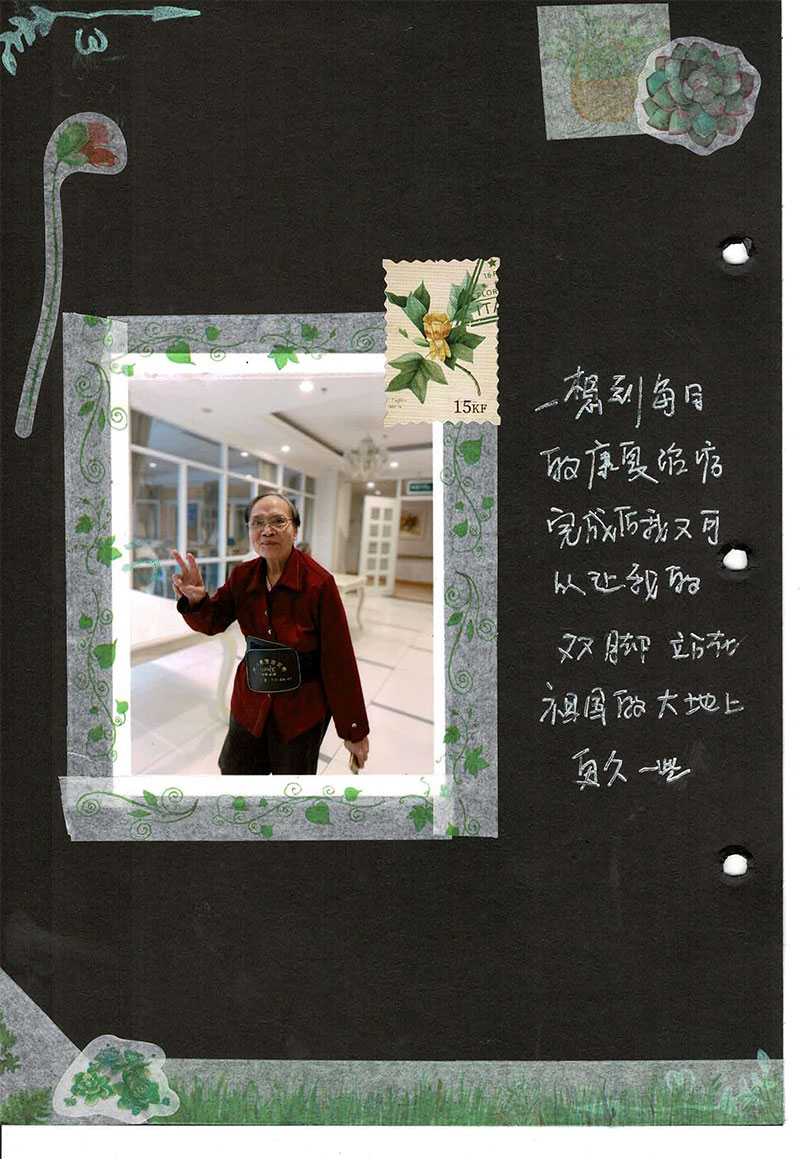 3
16 F
FLOR
ITA
15KF
一想到每日
的康复治疗
完成后我又可
以让我的
双脚 站在
祖国的大地上
更久一些